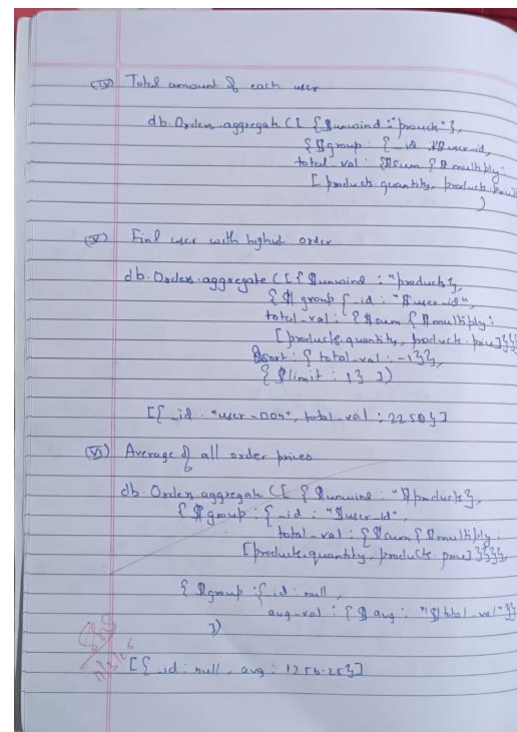 (IV) Total amount of each user
db.Orders.aggregate ([ { $unwind : "produch" },
{ $group : { _id : "$user-id,
total_val : { $sum { $ multiply :
[ product.quantity, product.price
)
(V) Find user with highest order
db.Orders.aggregate ([ { $unwind : "products },
{ $ group { _id : "$user-id",
total-val : { $ sum { $ multiply :
[ products.quantity, product.price ] } } }
$sort : { total_val : -1 } },
{ $limit : 1 } ])
[ { _id : "user-004", total_val : 2250 } ]
(VI) Average of all order prices
db.Orders.aggregate ([ { $unwind : "$products },
{ $group : { _id : "$user_id",
total-val : { $ sum { $ multiply :
[ products.quantity, products.price ] } } } },
{ $group : { _id : null,
avg-val : { $ avg : "$total_val" } }
})
[ { _id : null, avg : 1256.25 } ]